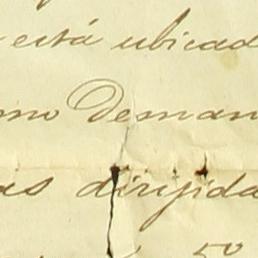 está ubicad
mo Deman
as dirijida
5º